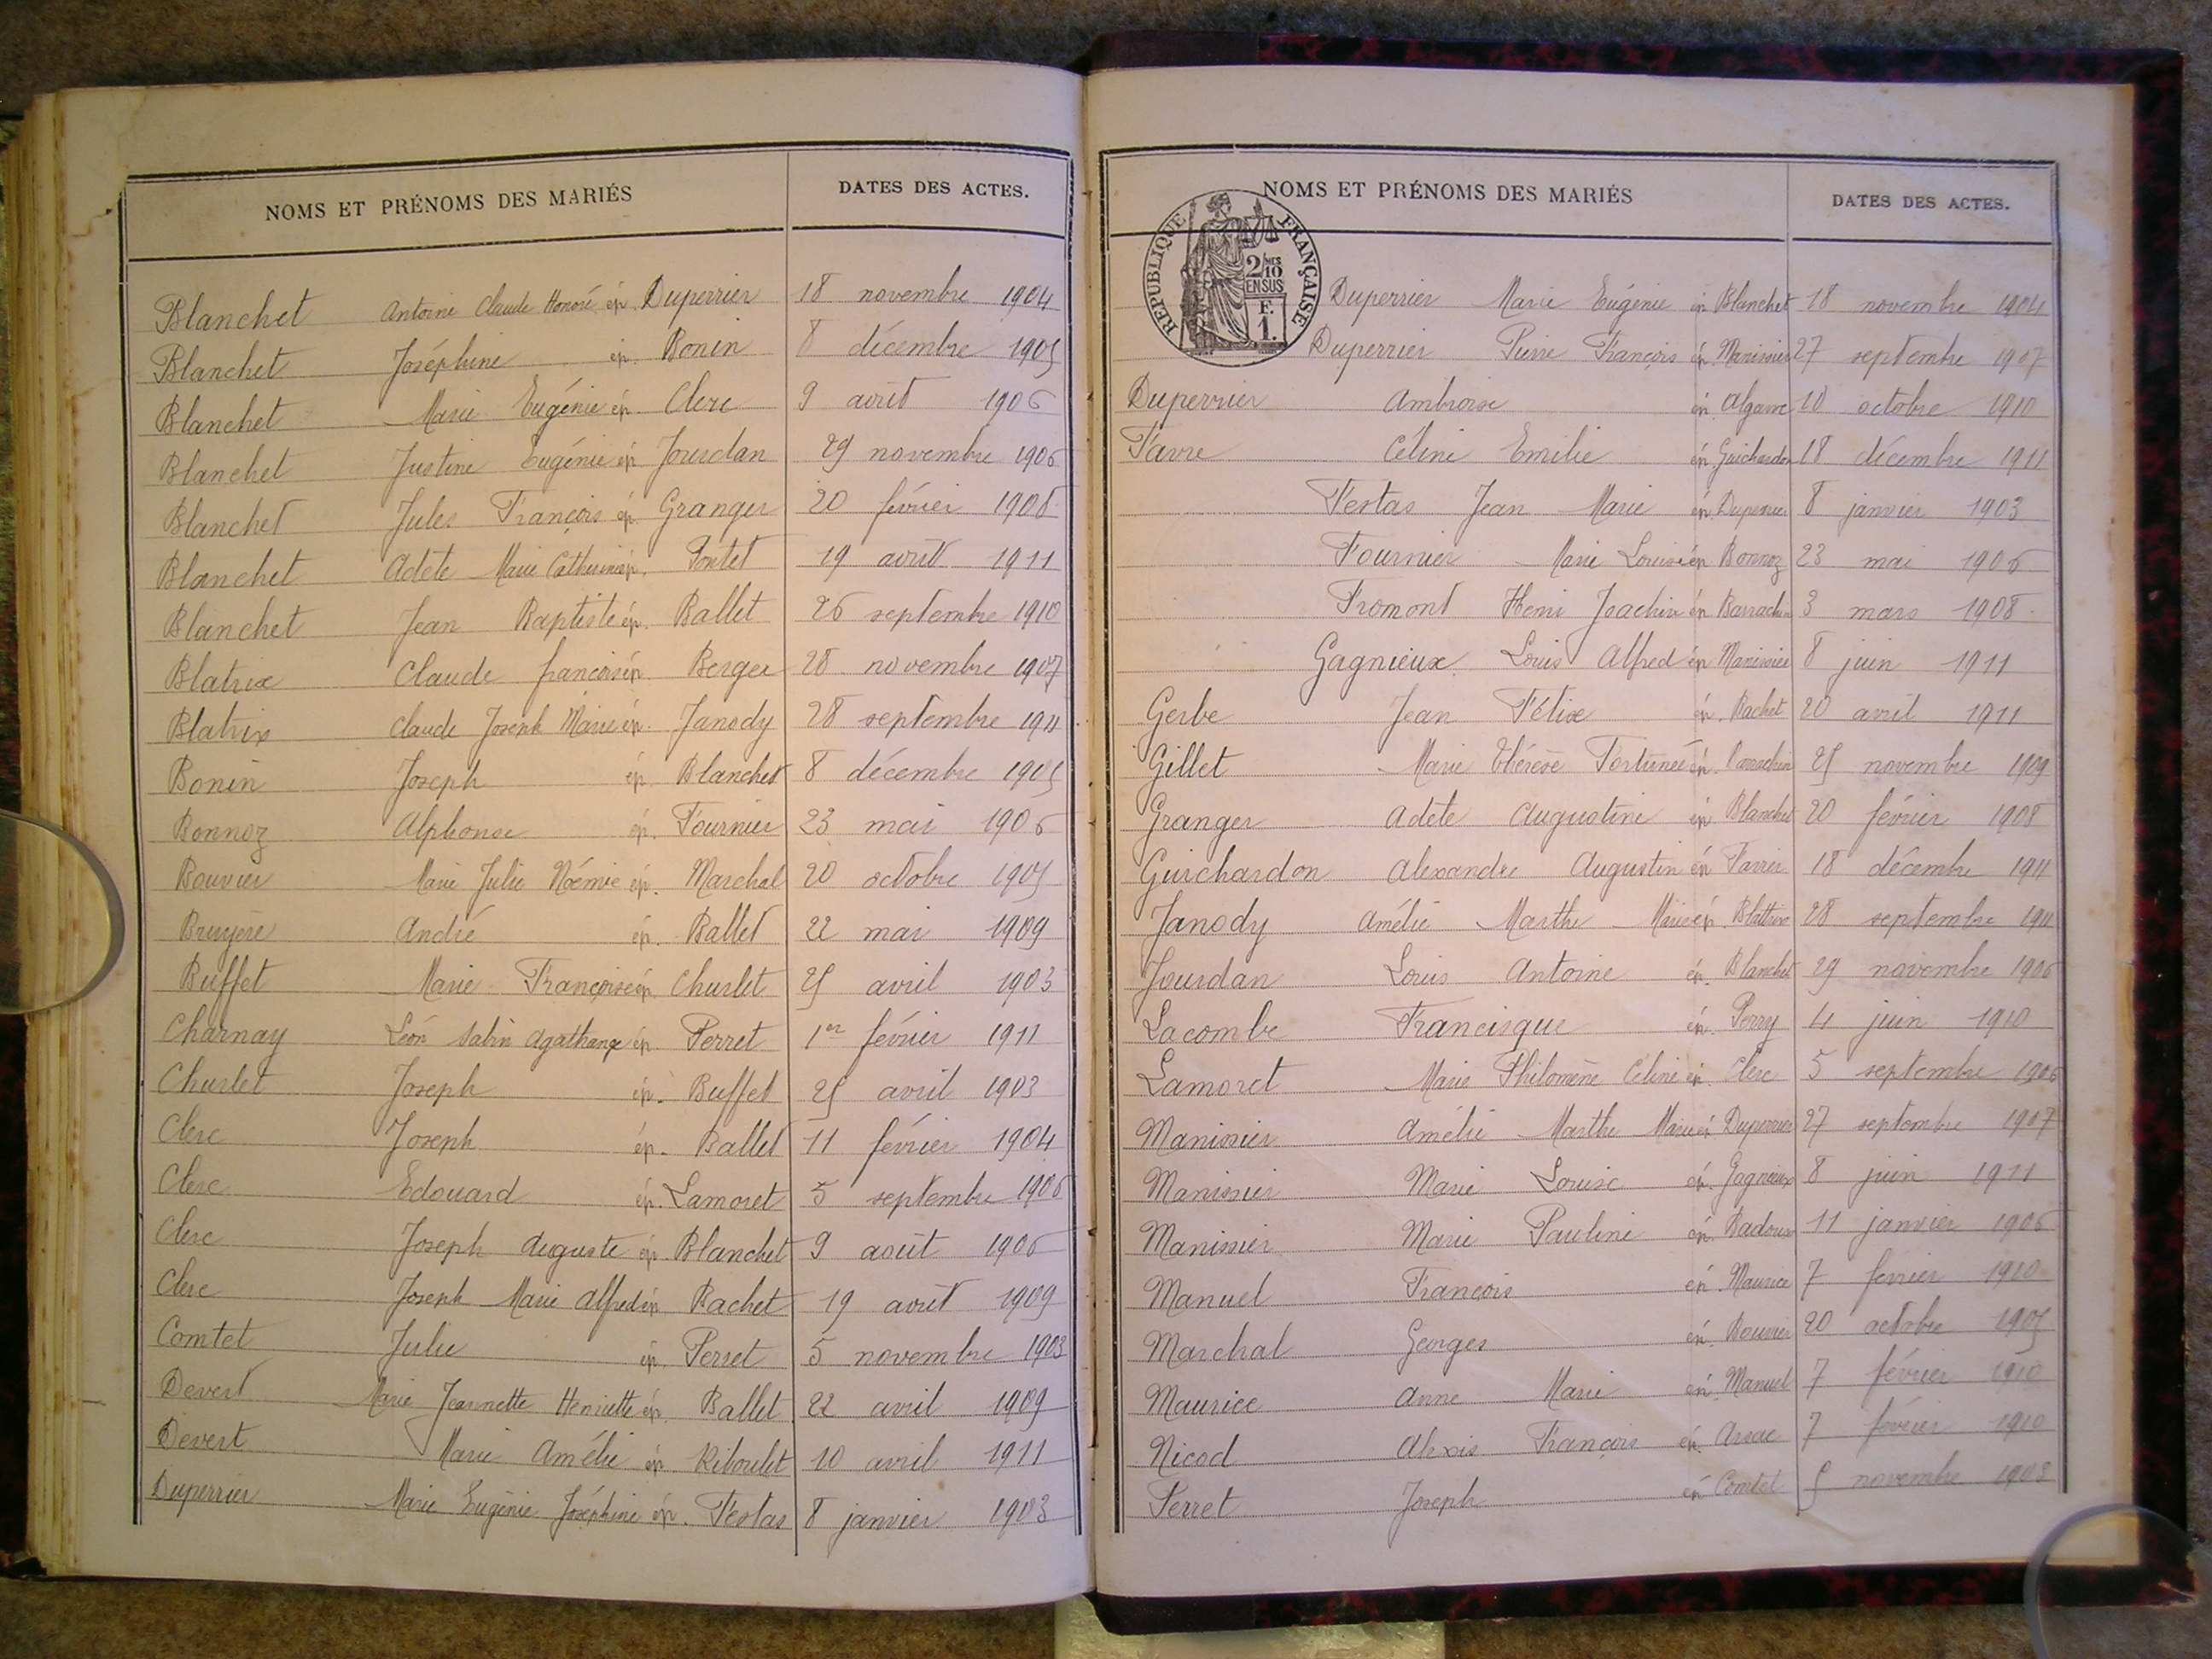 NOMS ET PRÉNOMS DES MARIÉS DATES DES ACTES.
Blanchet Antoine Claude Honoré ép. Duperrier 18 novembre 1904
Blanchet Joséphine ép. Bonin 8 décembre 1905
Blanchet Marie Eugénie ép. Clerc 9 août 1906
Blanchet Justine Eugénie ép. Jourdan 29 novembre 1906
Blanchet Jules François ép. Granger 20 février 1908
Blanchet Adèle Marie Catherine ép. Pontet 19 avril 1911
Blanchet Jean Baptiste ép. Ballet 26 septembre 1910
Blatrix Claude françois ép. Berger 28 novembre 1907
Blatrix Claude Joseph Marie ép. Janody 28 septembre 1911
Bonin Joseph ép. Blanchet 8 décembre 1905
Bonnoz Alphonse ép. Fournier 23 mai 1906
Bouvier Marie Julie Noémie ép. Marchal 20 octobre 1905
Bruyère André ép. Ballet 22 mai 1909
Buffet Marie Françoise ép. Churlet 25 avril 1903
Charnay Léon Sabin Agathange ép. Perret 1er février 1911
Churlet Joseph ép. Buffet 25 avril 1903
Clerc Joseph ép. Ballet 11 février 1904
Clerc Edouard ép. Lamoret 5 septembre 1906
Clerc Joseph Auguste ép. Blanchet 9 août 1906
Clerc Joseph Marie Alfred ép. Rachet 19 août 1909
Comtet Julie ép. Perret 5 novembre 1903
Devert Marie Jeannette Henriette ép. Ballet 22 avril 1909
Devert Marie Amélie ép. Riboulet 10 avril 1911
Duperrier Marie Eugénie Joséphine ép. Festas 8 janvier 1903
NOMS ET PRÉNOMS DES MARIÉS DATES DES ACTES.
RÉPUBLIQUE FRANÇAISE
2/10MES
EN SUS
F.
1.
Duperrier Marie Eugénie ép. Blanchet 18 novembre 1904
Duperrier Pierre François ép. Manissier 27 septembre 1907
Duperrier Ambroise ép. 10 octobre 1910
Favre Céline Emilie ép. Guichardon 18 décembre 1911
Festas Jean Marie ép. Duperrier 8 janvier 1903
Fournier Marie Louise ép. Bonnoz 23 mai 1906
Fromont Henri Joachim ép. 3 mars 1908
Gagnieux Louis Alfred ép. Manissier 8 juin 1911
Gerbe Jean Félix ép. Rachet 20 avril 1911
Gillet Marie Thérèse Fortunée ép. 25 novembre 1909
Granger Adèle Augustine ép. Blanchet 20 février 1908
Guichardon Alexandre Augustin ép. 18 décembre 1911
Janody Amélie Marthe Marie ép. Blattrix 28 septembre 1911
Jourdan Louis Antoine ép. Blanchet 29 novembre 1906
Lacombe Francisque ép. Perry 4 juin 1910
Lamoret Marie Philomène Céline ép. Clerc 5 septembre 1906
Manissier Amélie Marthe Marie ép. Duperrier 27 septembre 1907
Manissier Marie Louise ép. Gagnieux 8 juin 1911
Manissier Marie Pauline ép. Badoux 11 janvier 1906
Manuel François ép. Maurice 7 février 1910
Marchal Georges ép. Bouvier 20 octobre 1905
Maurice Anne Marie ép. Manuel 7 février 1910
Nicod Alexis François ép. Arsac 7 février 1910
Perret Joseph ép. Comtet 5 novembre 1903